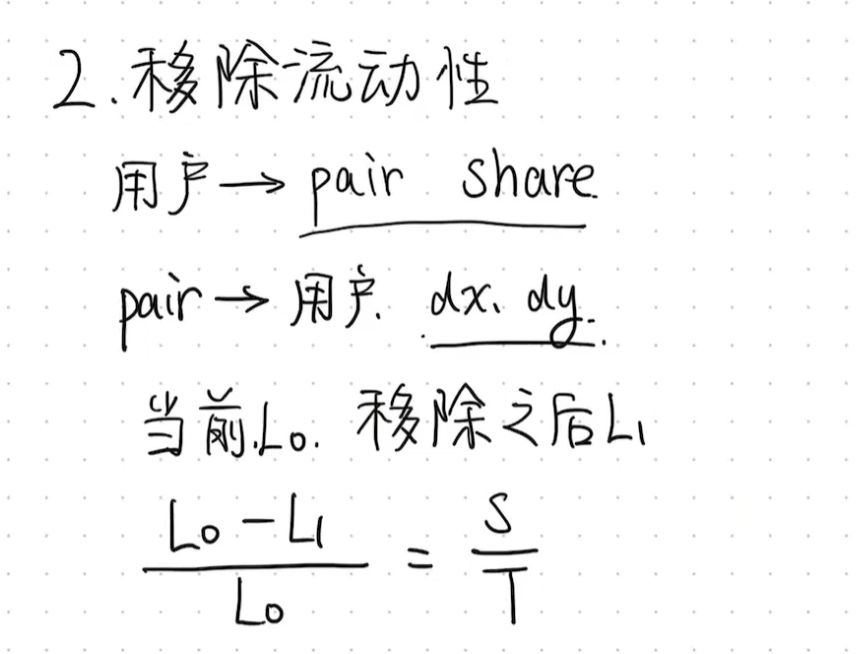 2.移除流动性
用户→pair share.
pair→用户. dx、dy.
当前L₀. 移除之后L₁
(L₀-L₁)/L₀ = S/T